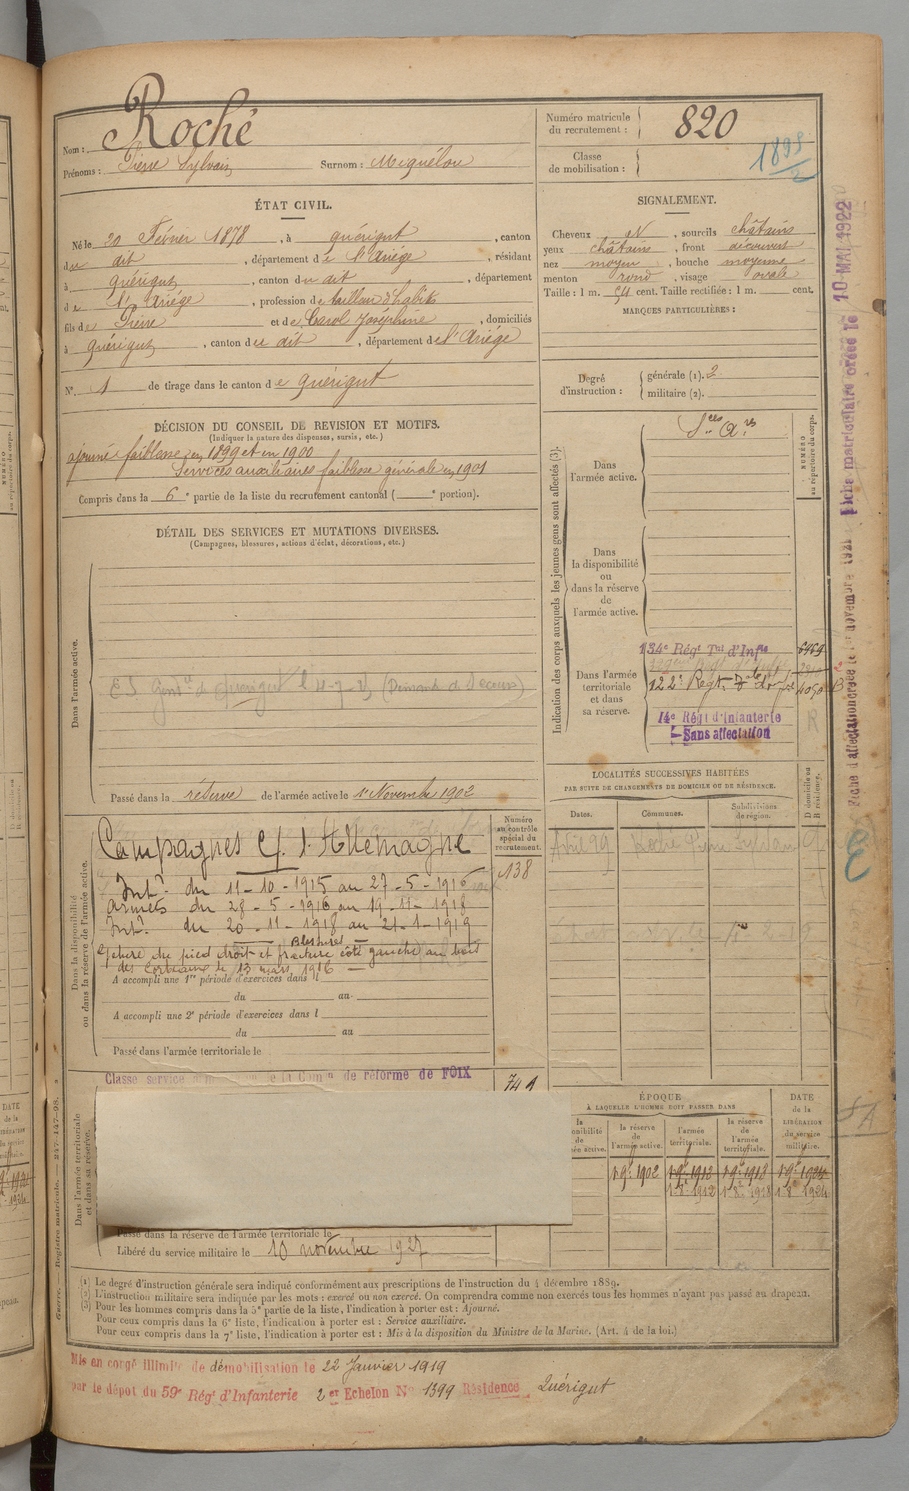 Nom : Roché
Prénoms : Pierre Sylvain Surnom : Miquélou
Numéro matricule du recrutement : 820
Classe de mobilisation : 1898/2
ÉTAT CIVIL.
Né le 20 Février 1878, à Quérigut, canton
du dit, département de l'Ariège, résidant
à Quérigut, canton du dit, département
de l'Ariège, profession de tailleur d'habits
fils de Pierre et de Carol Joséphine, domiciliés
à Quérigut, canton du dit, département de l'Ariège
N° 1 de tirage dans le canton de Quérigut
SIGNALEMENT.
Cheveux N, sourcils châtains
yeux châtains, front découvert
nez moyen, bouche moyenne
menton rond, visage ovale
Taille : 1 m. 54 cent. Taille rectifiée : 1 m. cent.
MARQUES PARTICULIÈRES :
Degré d'instruction : générale (1). 2
militaire (2).
DÉCISION DU CONSEIL DE REVISION ET MOTIFS.
(Indiquer la nature des dispenses, sursis, etc.)
ajourné faiblesse en 1899 et en 1900
Services auxiliaires faiblesse générale en 1901
Compris dans la 6e partie de la liste du recrutement cantonal ( e portion).
DÉTAIL DES SERVICES ET MUTATIONS DIVERSES.
(Campagnes, blessures, actions d'éclat, décorations, etc.)
Dans l'armée active.
Passé dans la réserve de l'armée active le 1r Novembre 1902
Indication des corps auxquels les jeunes gens sont affectés (3).
NUMÉRO au répertoire du corps.
Dans l'armée active.
Sces Ares
Dans la disponibilité ou dans la réserve de l'armée active.
Dans l'armée territoriale et dans sa réserve.
134e Régt Tal d'Infie
122e Régt
14e Régt d'Infanterie
Sans affectation
R
LOCALITÉS SUCCESSIVES HABITÉES
PAR SUITE DE CHANGEMENTS DE DOMICILE OU DE RÉSIDENCE.
Dates. Communes. Subdivisions de région. D domicile ou R résidence.
Avril 99 Roché Pierre Sylvain
Dans la disponibilité ou dans la réserve de l'armée active.
Numéro au contrôle spécial du recrutement.
138
Campagnes C/. l'Allemagne
Intr. du 11-10-1915 au 27-5-1916
Armées du 28-5-1916 au 19-11-1918
Intr. du 20-11-1918 au 21-1-1919
Blessures
gelure du pied droit et fracture côté gauche au bois
des Corbeaux le 13 mars 1916
A accompli une 1re période d'exercices dans l
du au
A accompli une 2e période d'exercices dans l
du au
Passé dans l'armée territoriale le
Dans l'armée territoriale et dans sa réserve.
de réforme de FOIX
741
Passé dans la réserve de l'armée territoriale le
Libéré du service militaire le 10 novembre 1927
ÉPOQUE
À LAQUELLE L'HOMME DOIT PASSER DANS
la réserve de l'armée active. l'armée territoriale. la réserve de l'armée territoriale.
DATE de la LIBÉRATION du service militaire.
1r 9e 1902 1r 9e 1912 1r 9e 1918 1r 9e 1924
1r 8e 1912 1r 8e 1918 1r 8e 1924
SA
(1) Le degré d'instruction générale sera indiqué conformément aux prescriptions de l'instruction du 4 décembre 1889.
(2) L'instruction militaire sera indiquée par les mots : exercé ou non exercé. On comprendra comme non exercés tous les hommes n'ayant pas passé au drapeau.
(3) Pour les hommes compris dans la 5e partie de la liste, l'indication à porter est : Ajourné.
Pour ceux compris dans la 6e liste, l'indication à porter est : Service auxiliaire.
Pour ceux compris dans la 7e liste, l'indication à porter est : Mis à la disposition du Ministre de la Marine. (Art. 4 de la loi.)
Mis en congé illimité de démobilisation le 22 Janvier 1919
par le dépôt du 59e Régt d'Infanterie 2 er Echelon N° 1399 Résidence Quérigut
Guerre. — Registre matricule. — 247-147-98.
Fiche matriculaire créée le 10 MAI 1922